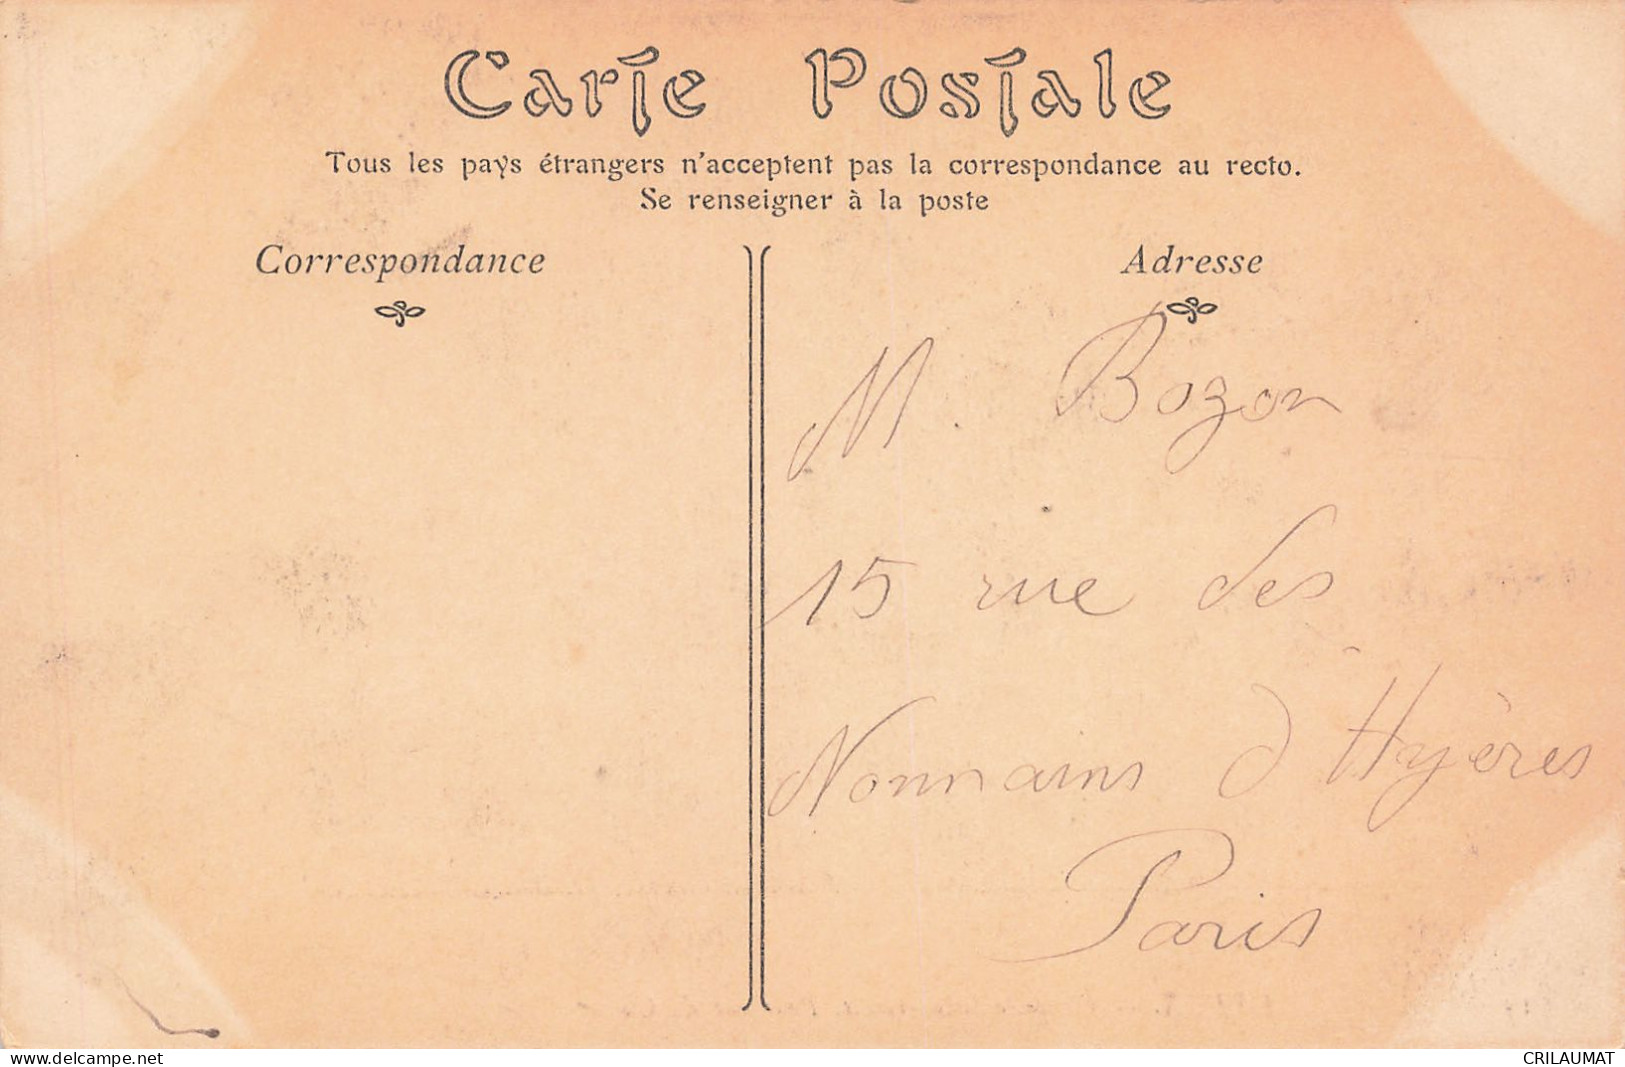 Carte Postale
Tous les pays étrangers n'acceptent pas la correspondance au recto.
Se renseigner à la poste
Correspondance
Adresse
M. Bozon
15 rue des
Nonnains d'Hyères
Paris
www.delcampe.net
CRILAUMAT